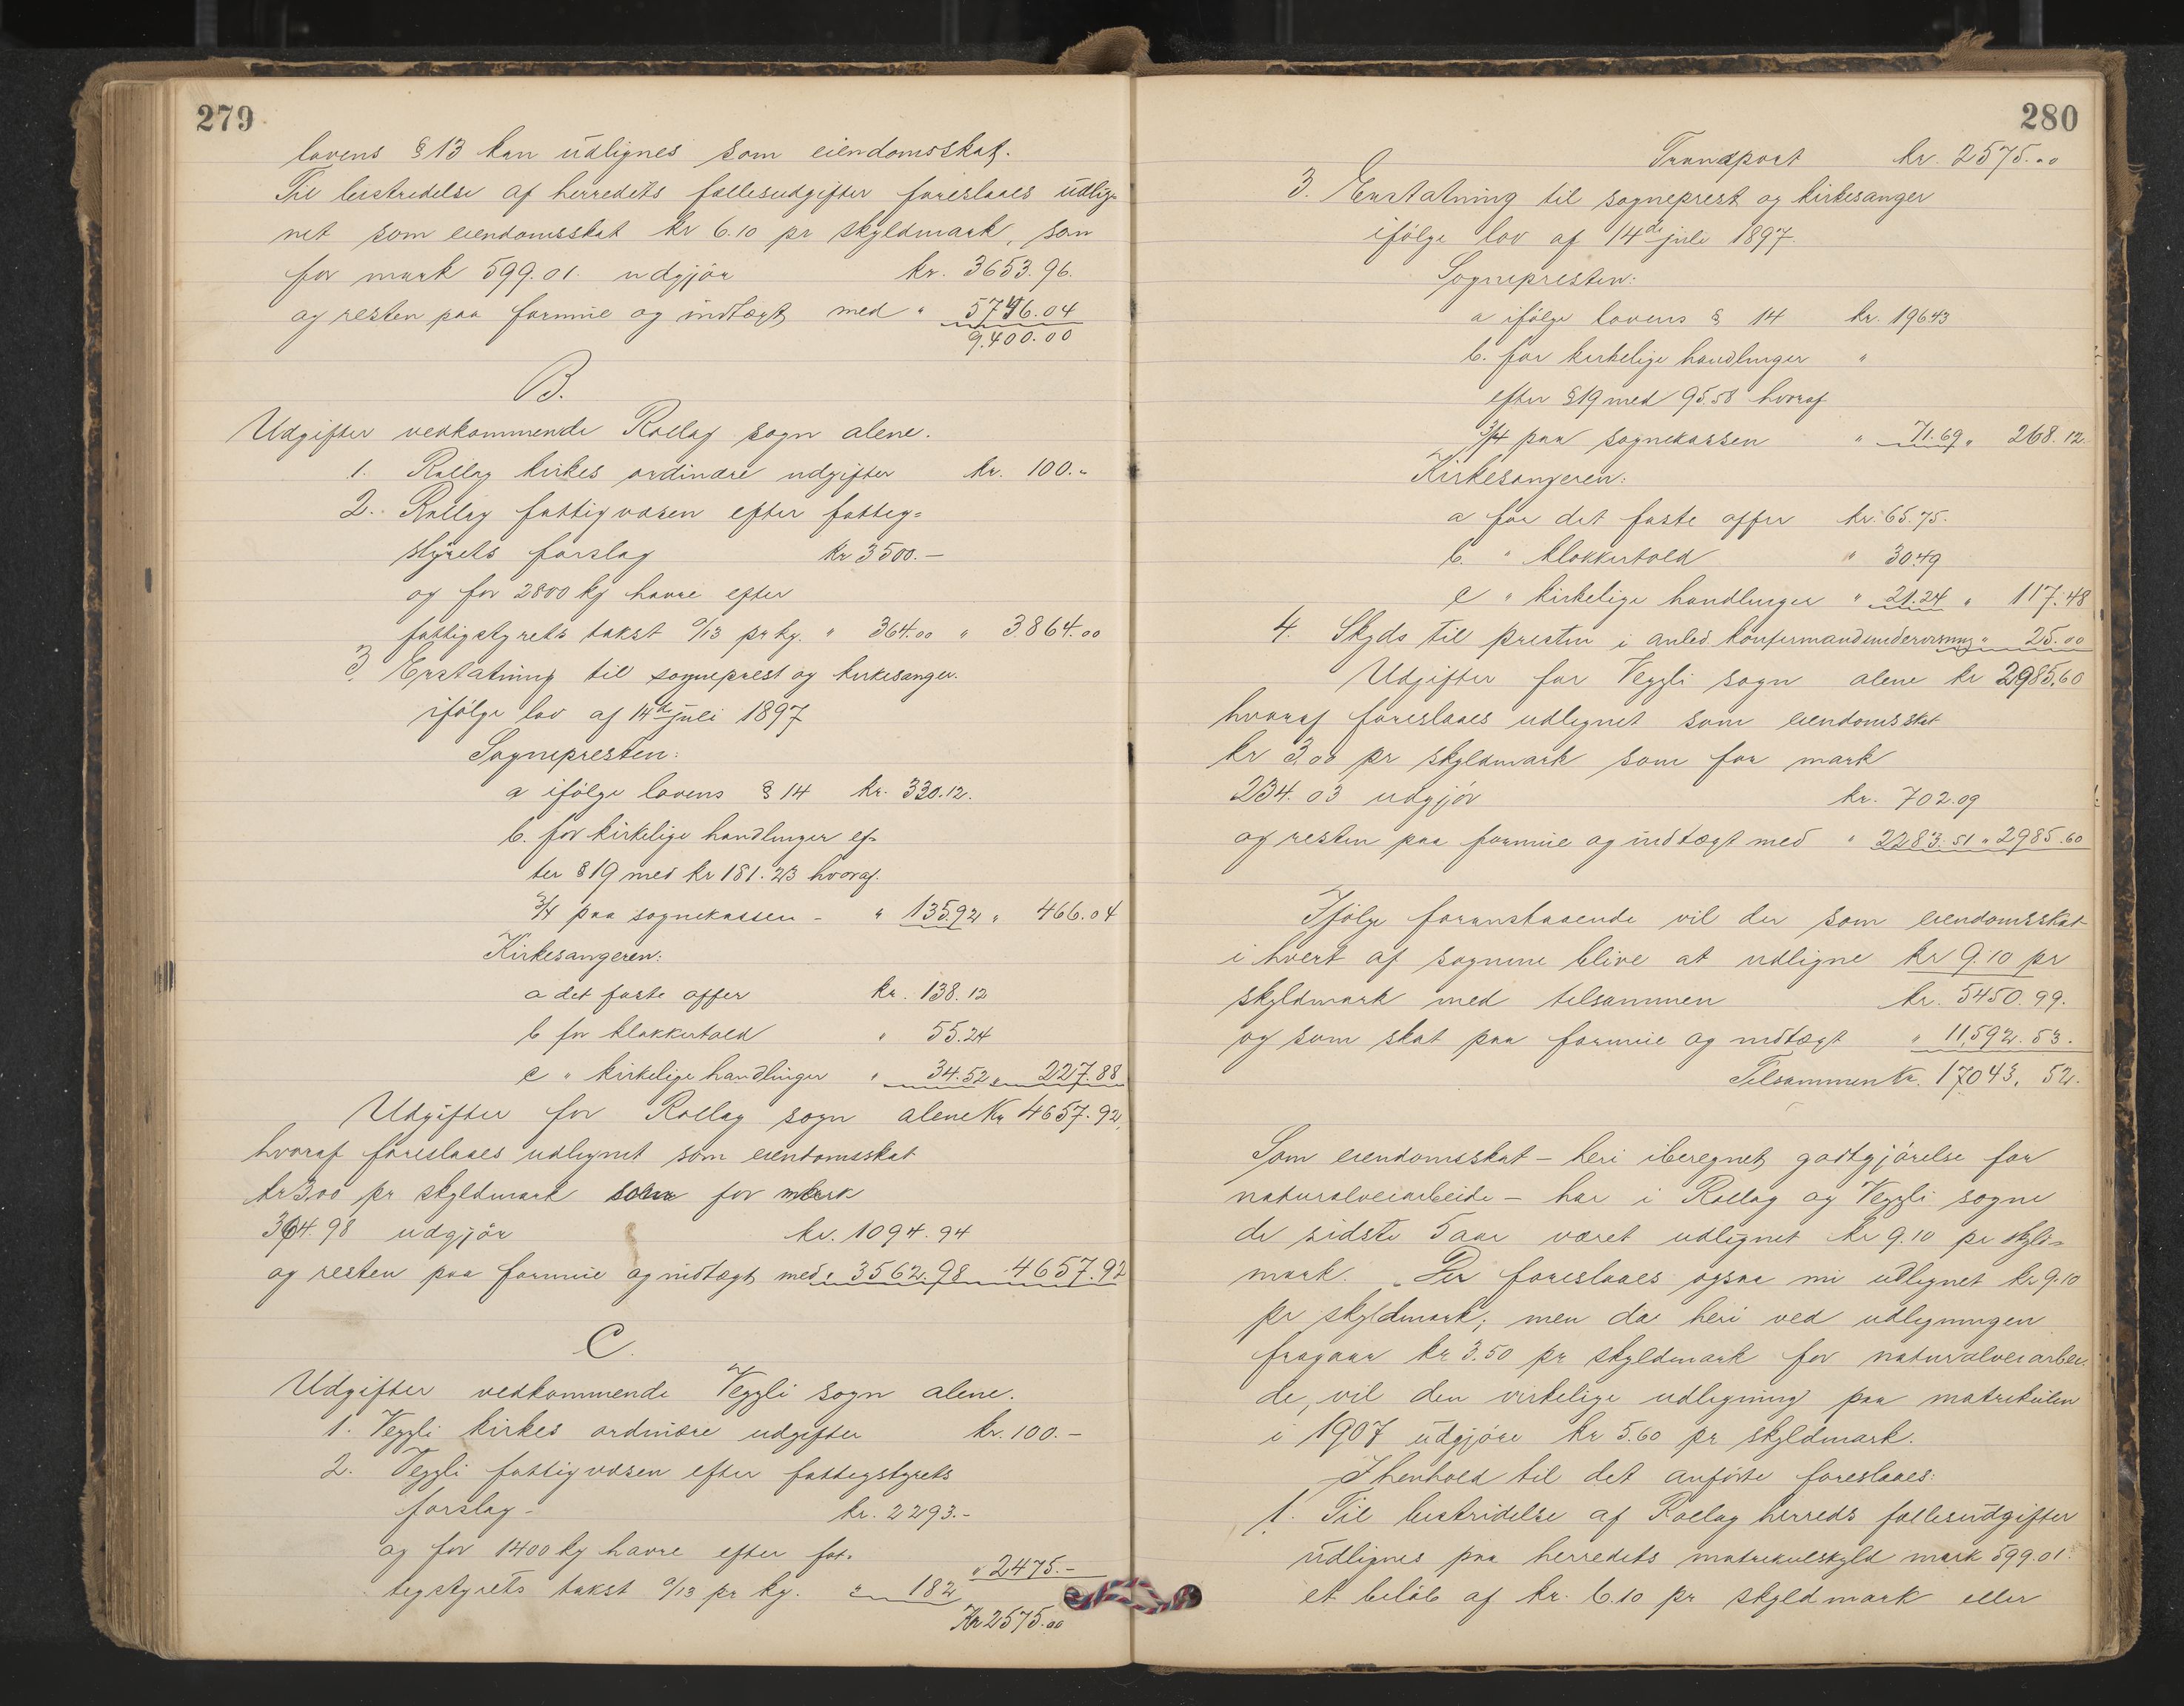 279
lovens § 13 kan udlignes som eiendomsskat.
Til bestridelse af herredets fællesudgifter foreslaaes udlig-
net som eiendomsskat kr 6.10 pr skyldmark, som
for mark 599.01. udgjør kr. 3653.96.
og resten paa formue og indtægt med " 5746.04
9.400.00
B.
Udgifter vedkommende Rollag sogn alene.
1. Rollag kirkes ordinære udgifter kr. 100.-
2. Rollag fattigvæsen efter fattig=
styrets forslag kr 3500.-
og for 2800 kg havre efter
fattigstyrets takst 0/13 pr kg. " 364.00 " 3864.00
3. Erstatning til sogneprest og kirkesanger.
ifølge lov af 14de juli 1897
Sognepresten:
a ifølge lovens § 14 kr. 330.12.
b. for kirkelige handlinger ef-
ter § 19 med kr 181.23 hvoraf.
3/4 paa sognekassen - " 135.92 " 466.04
Kirkesangeren:
a det faste offer kr. 138.12
b for klokkertold " 55.24
c " kirkelige handlinger " 34.52 " 227.88
Udgifter for Rollag sogn alene Kr 4657.92,
hvoraf foreslaaes udlignet som eiendomsskat
kr 3.00 pr skyldmark som for mark
364.98 udgjør kr. 1094.94
og resten paa formue og indtægt med " 3562.98 4657.92
C.
Udgifter vedkommende Veggli sogn alene.
1. Veggli kirkes ordinære udgifter kr. 100.-
2. Veggli fattigvæsen efter fattigstyrets
forslag - kr. 2293.-
og for 1400 kg havre efter fat-
tigstyrets takst 0/13 pr kg. " 182 " 2475.-
Kr 2575.00
280
Transport kr. 2575.00
3. Erstatning til sogneprest og kirkesanger
ifølge lov af 14de juli 1897.
Sognepresten:
a ifølge lovens § 14 kr. 196.43
b. for kirkelige handlinger "
efter § 19 med 95.58 hvoraf
3/4 paa sognekassen " 71.69 " 268.12.
Kirkesangeren:
a for det faste offer kr. 65.75.
b. " klokkertold " 30.49
c " kirkelige handlinger " 21.24 " 117.48
4. Skyds til presten i anled. konfirmandundervisning " 25.00
Udgifter for Veggli sogn alene kr 2985.60
hvoraf foreslaaes udlignet som eiendomsskat
kr 3.00 pr skyldmark som for mark
234.03 udgjør kr. 702.09
og resten paa formue og indtægt med " 2283.51 " 2985.60
Ifølge foranstaaende vil der som eiendomsskat
i hvert af sognene blive at udligne kr 9.10 pr
skyldmark med tilsammen kr. 5450.99.
og som skat paa formue og indtægt " 11,592.53.
Tilsammen Kr. 17,043.52.
Som eiendomsskat - heri iberegnet godtgjørelse for
naturalveiarbeide - har i Rollag og Veggli sogne
de sidste 5 aar været udlignet kr 9.10 pr skyld=
mark. Der foreslaaes ogsaa nu udlignet kr 9.10
pr skyldmark; men da heri ved udligningen
fragaar kr 3.50 pr skyldmark for naturalveiarbei-
de, vil den virkelige udligning paa matrikulen
i 1907 udgjøre kr 5.60 pr skyldmark.
I henhold til det anførte foreslaaes:
1. Til bestridelse af Rollag herreds fællesudgifter
udlignes paa herredets matrikulskyld mark 599.01.
et beløb af kr. 6.10 pr skyldmark eller